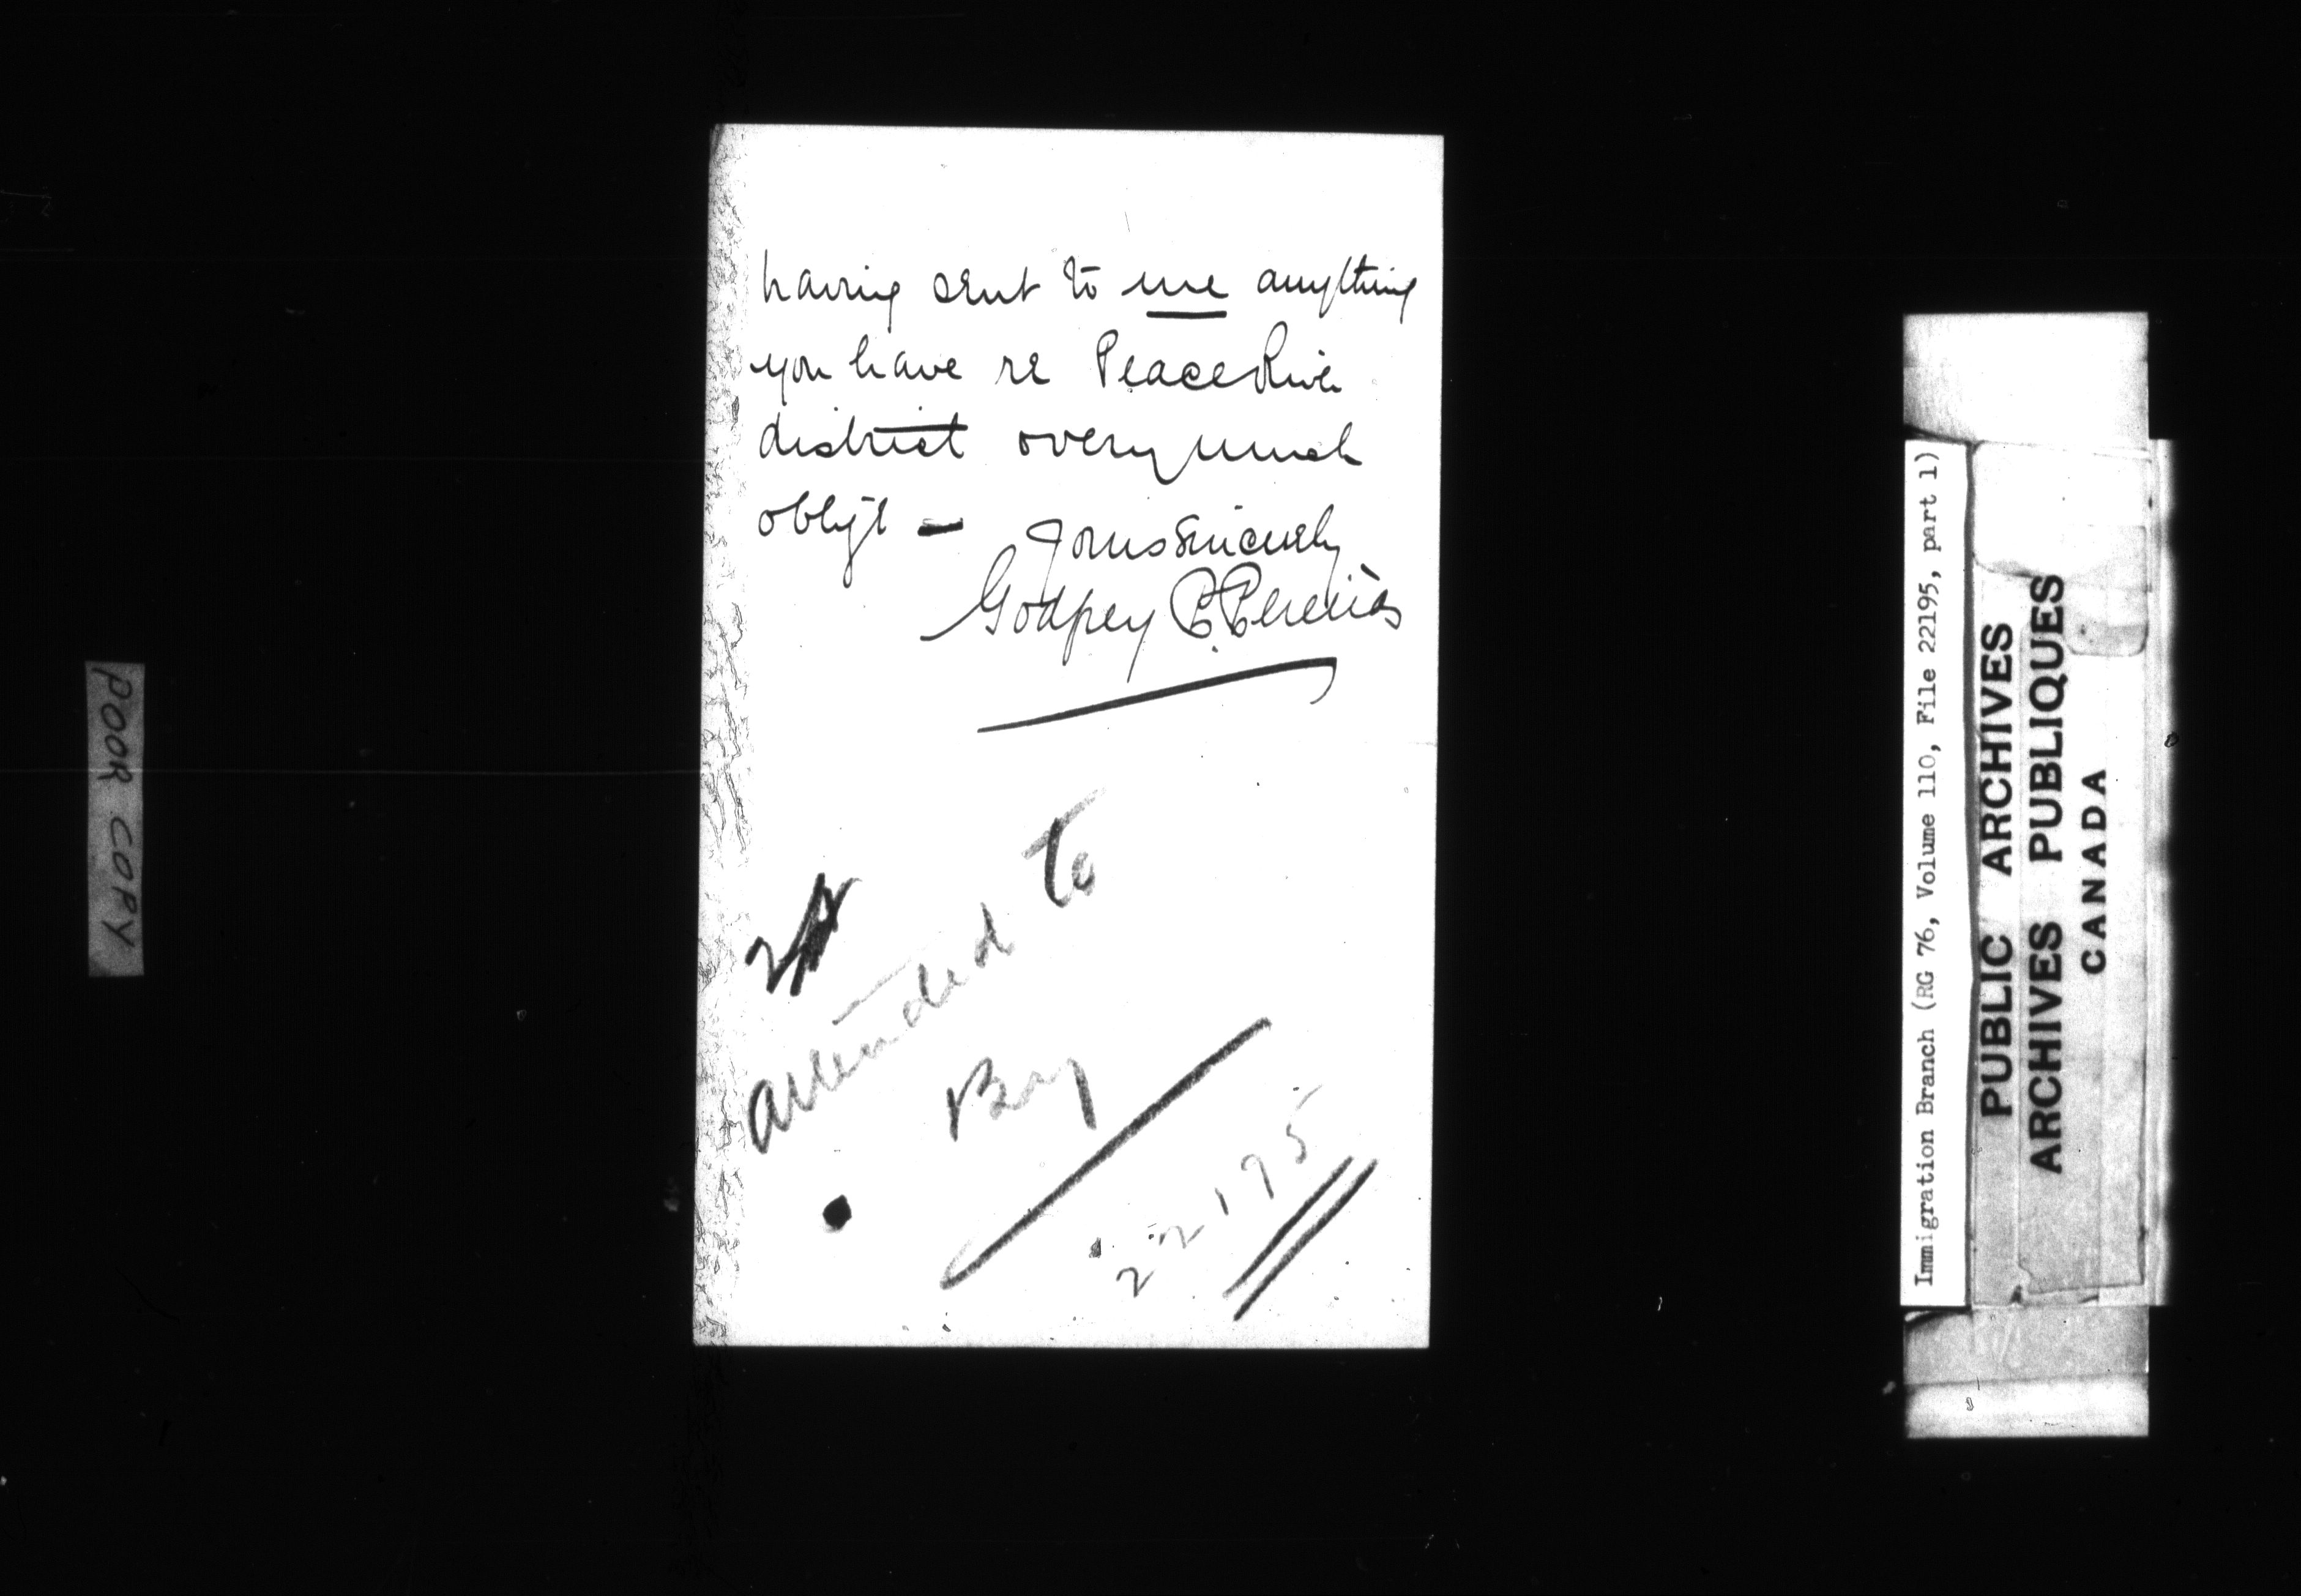 having sent to me anything
you have re Peace River
district & very much
oblige —
Yours Sincerely
Godfrey
attended to
22195
POOR COPY
Immigration Branch (RG 76, Volume 110, File 22195, part 1)
PUBLIC ARCHIVES
ARCHIVES PUBLIQUES
CANADA